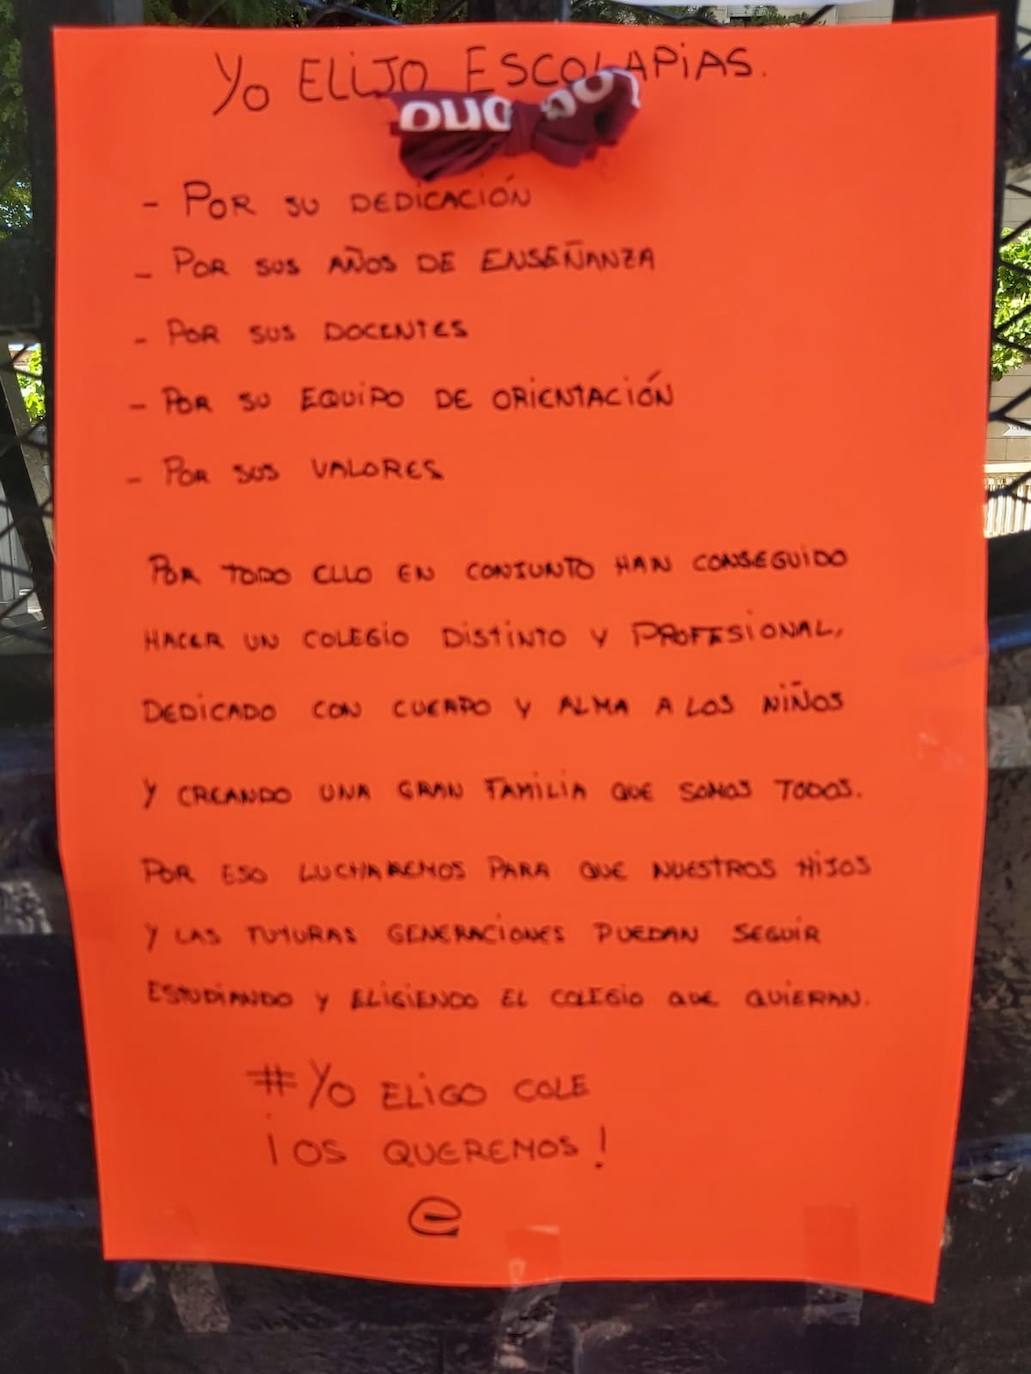 Yo ELIJO ESCOLAPIAS.
- POR SU DEDICACIÓN
- POR SUS AÑOS DE ENSEÑANZA
- POR SUS DOCENTES
- POR SU EQUIPO DE ORIENTACIÓN
- POR SUS VALORES
POR TODO ELLO EN CONJUNTO HAN CONSEGUIDO
HACER UN COLEGIO DISTINTO Y PROFESIONAL,
DEDICADO CON CUERPO Y ALMA A LOS NIÑOS
Y CREANDO UNA GRAN FAMILIA QUE SOMOS TODOS.
POR ESO LUCHAREMOS PARA QUE NUESTROS HIJOS
Y LAS FUTURAS GENERACIONES PUEDAN SEGUIR
ESTUDIANDO Y ELIGIENDO EL COLEGIO QUE QUIERAN.
#YO ELIGO COLE
¡OS QUEREMOS!
e